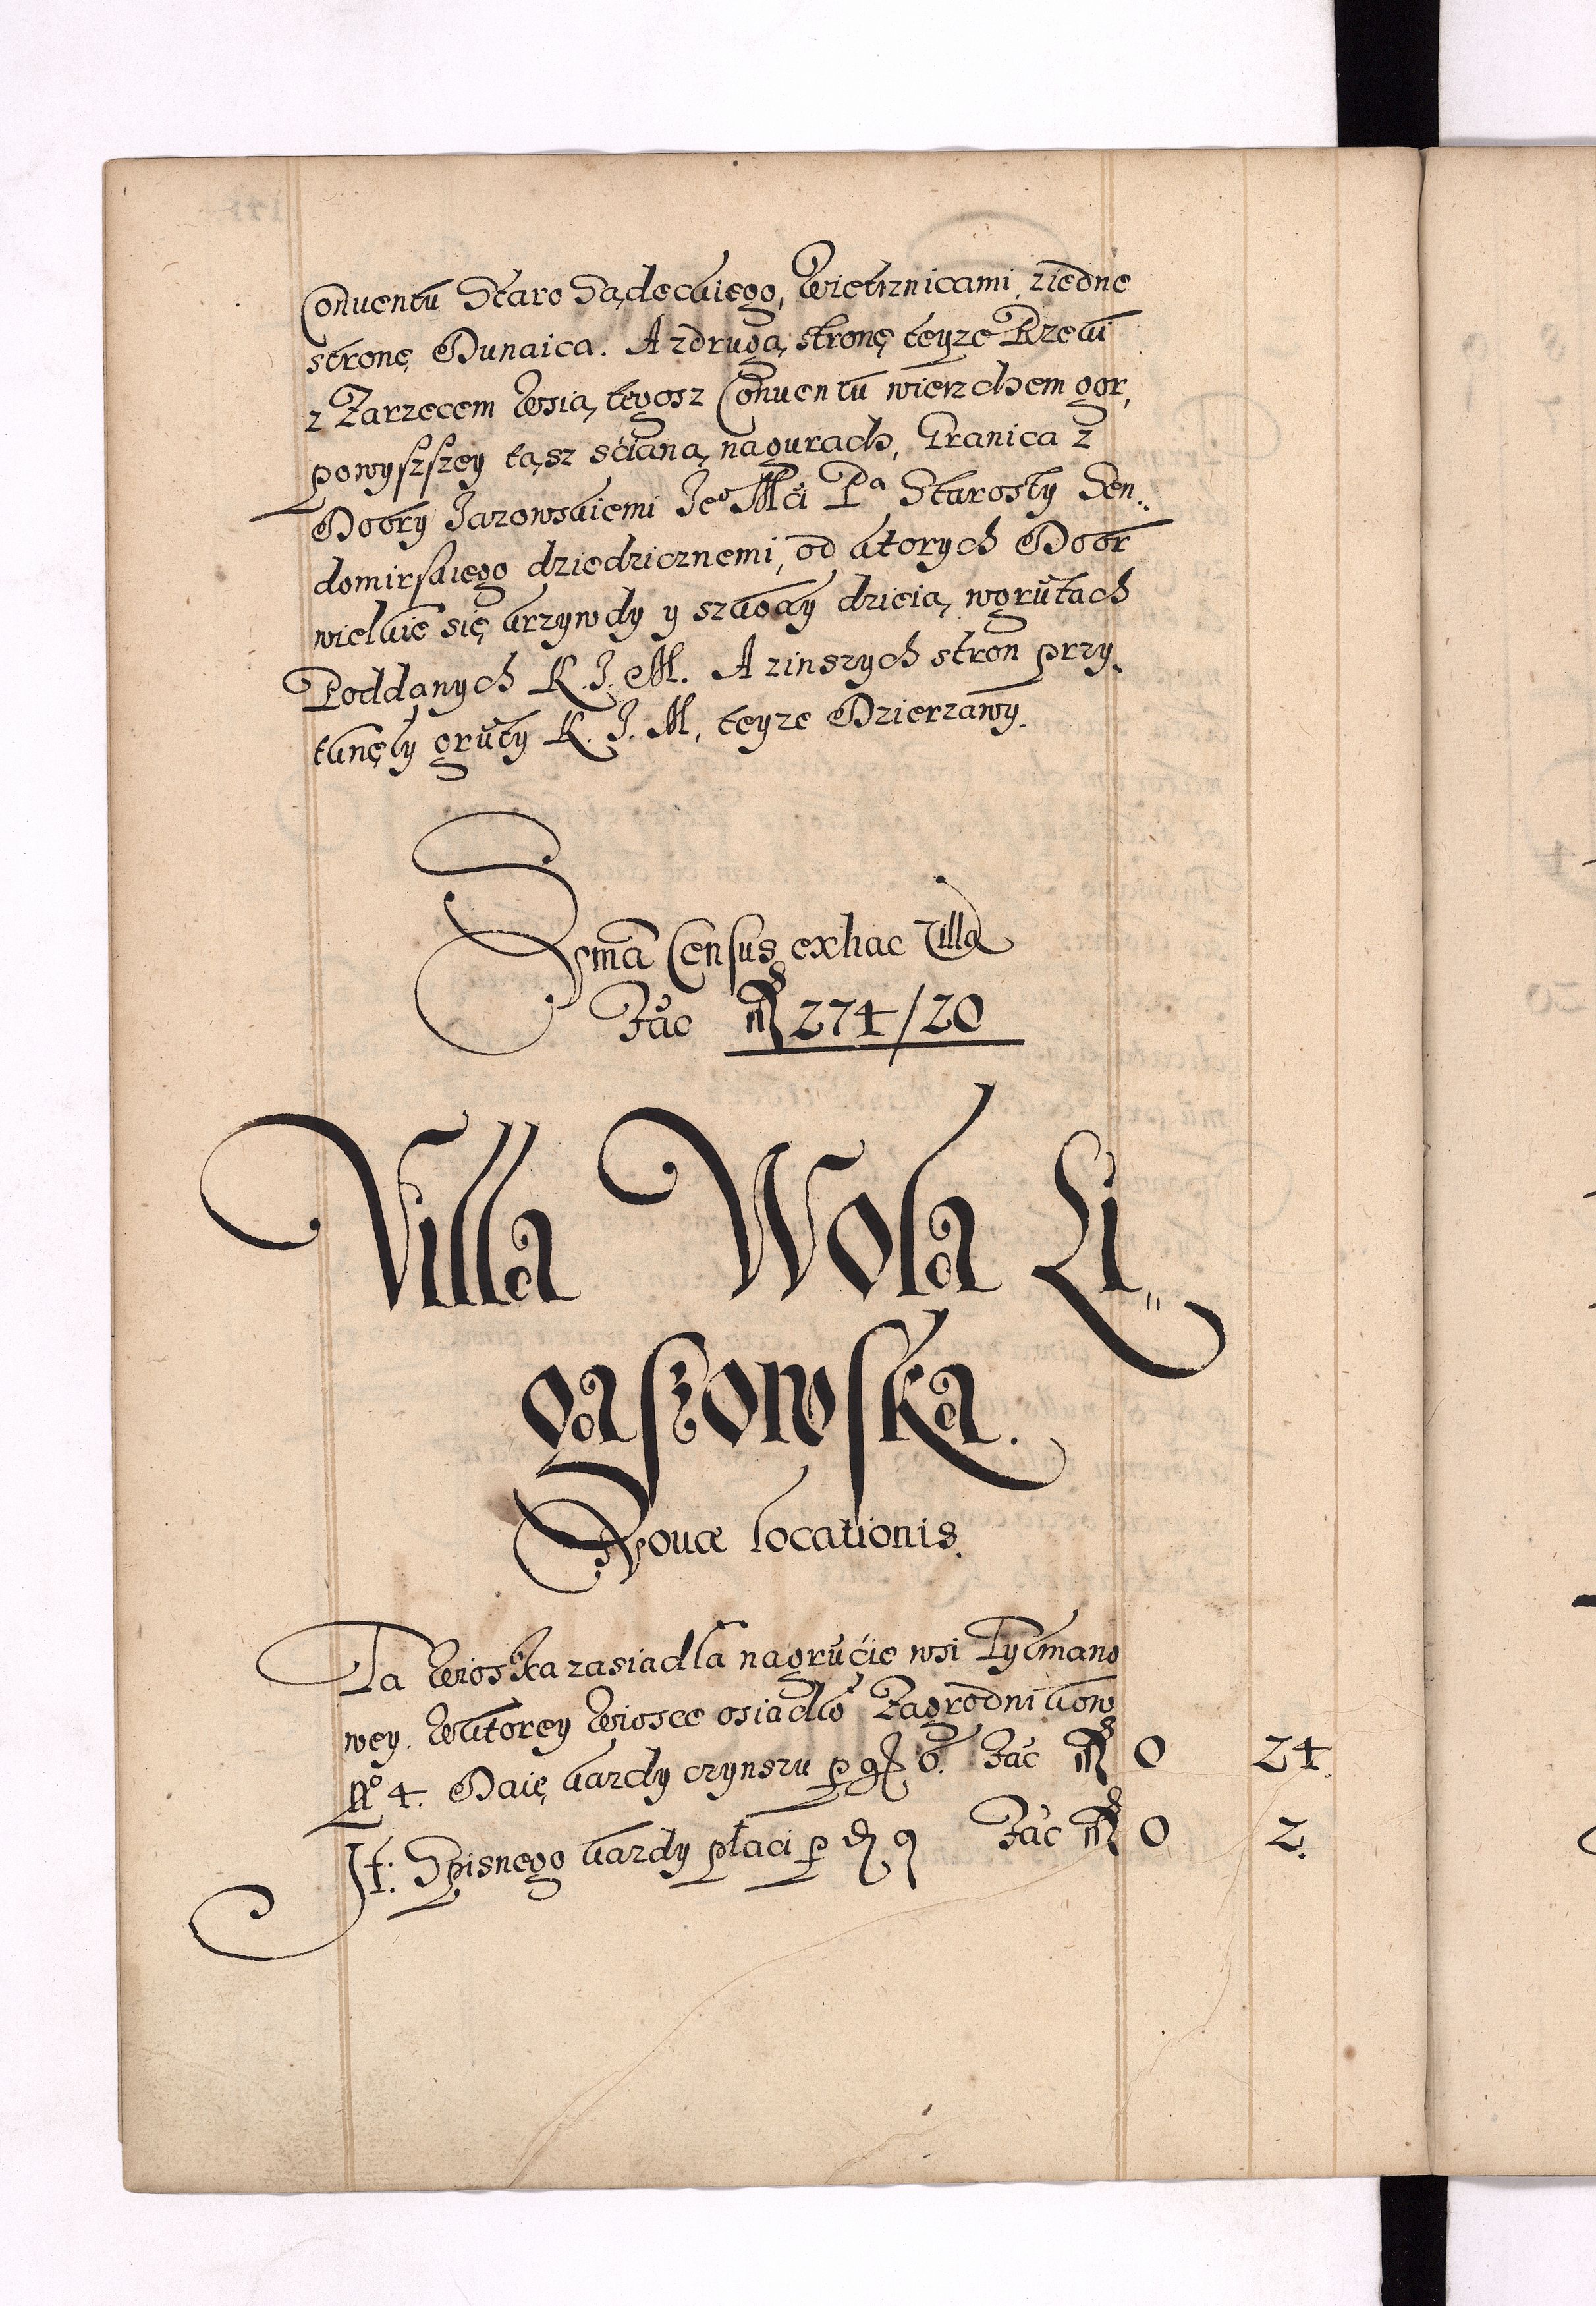 Conuentu Staro Sądeckiego, Wietrznicami, ziedne
stronę Dunaica. A zdrugą stronę teyze Rzeki
z Zarzecem Wsią, tegosz Conuentu wierzchem gor,
powyszszey tąsz scianą, nagurach, Granica z
Dobry Jazowskiemi Je⁰ Mći Pᵃ Starosty Sen„
domirskiego dziedzicznemi, od ktorych Dobr
wielkie się krzywdy y szkody dzieią, wgrutach
Poddanych K. J. M. A zinszych stron przy„
tknęly gruty K. J. M, teyze Dzierzawy.
Suma Census exhac Villa
Fac mᵍ 274/20
Villa Wola Li„
gaszowska.
Nouæ locationis.
Ta Wioska zasiadla nagrucie wsi Tylmano
wey. Wktorey Wiosce osiadlo Zagrodnikow
N⁰ 4. Daię kazdy czynszu p gr 6. Fac mᵍ 0 24.
It: Spisnego kazdy płaci p d 9 Fac mᵍ 0 2.